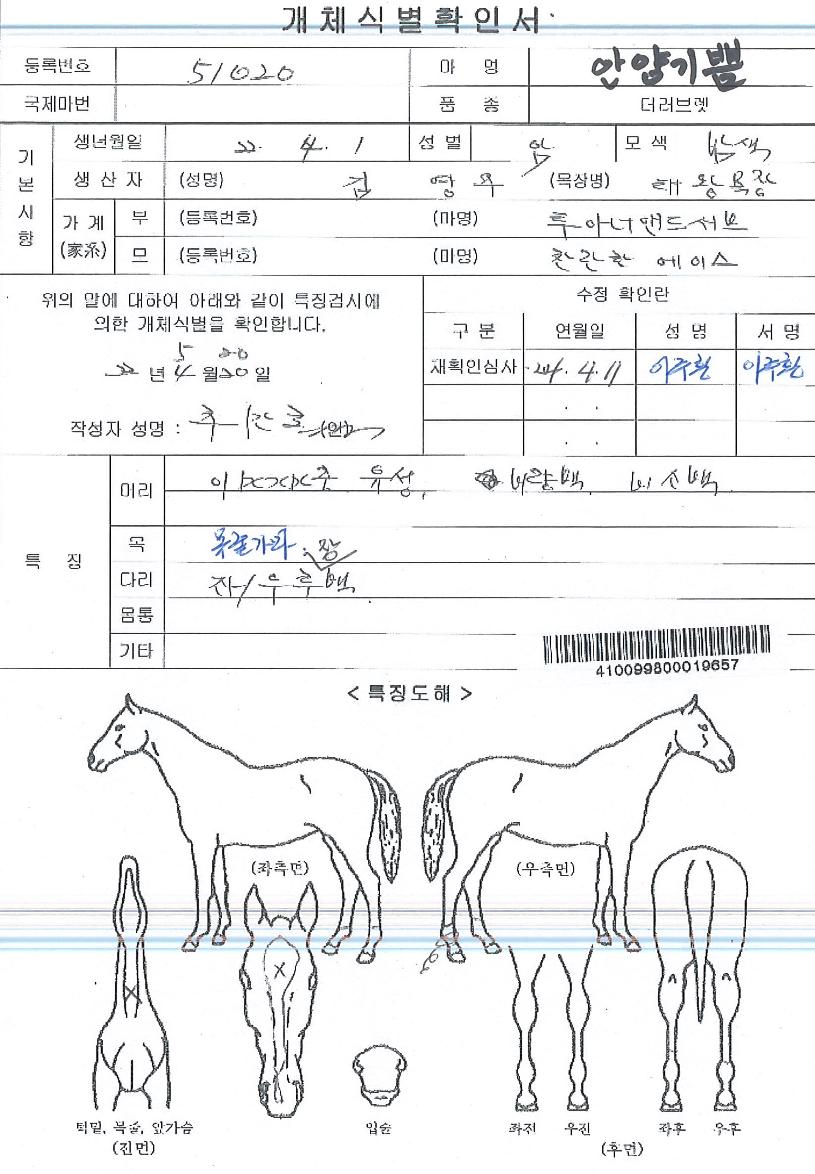 개체식별확인서
등록번호 51020 마 명 안압기쁨
국제마번 품 종 더러브렛
기본사항
생년월일 22. 4. 1 성별 암 모색 밤색
생산자 (성명) 김 영 우 (목장명) 태왕목장
가계(家系) 부 (등록번호) (마명) 투아너앤드서브
모 (등록번호) (마명) 찬란한 에이스
위의 말에 대하여 아래와 같이 특징검사에
의한 개체식별을 확인합니다.
5 20
22 년 4 월 20 일
작성자 성명 :
수정 확인란
구 분 연월일 성 명 서 명
재확인심사 24. 4. 11 이주환 이주환
. .
. .
특 징
머리 유성, 비량백, 비소백
목 목골가마. 장
다리 좌/우 후 백.
몸통
기타
410099800019657
< 특징도해 >
(좌측면) (우측면)
턱밑, 목줄, 앞가슴
(전면)
입술
좌전 우전 좌후 우후
(후면)